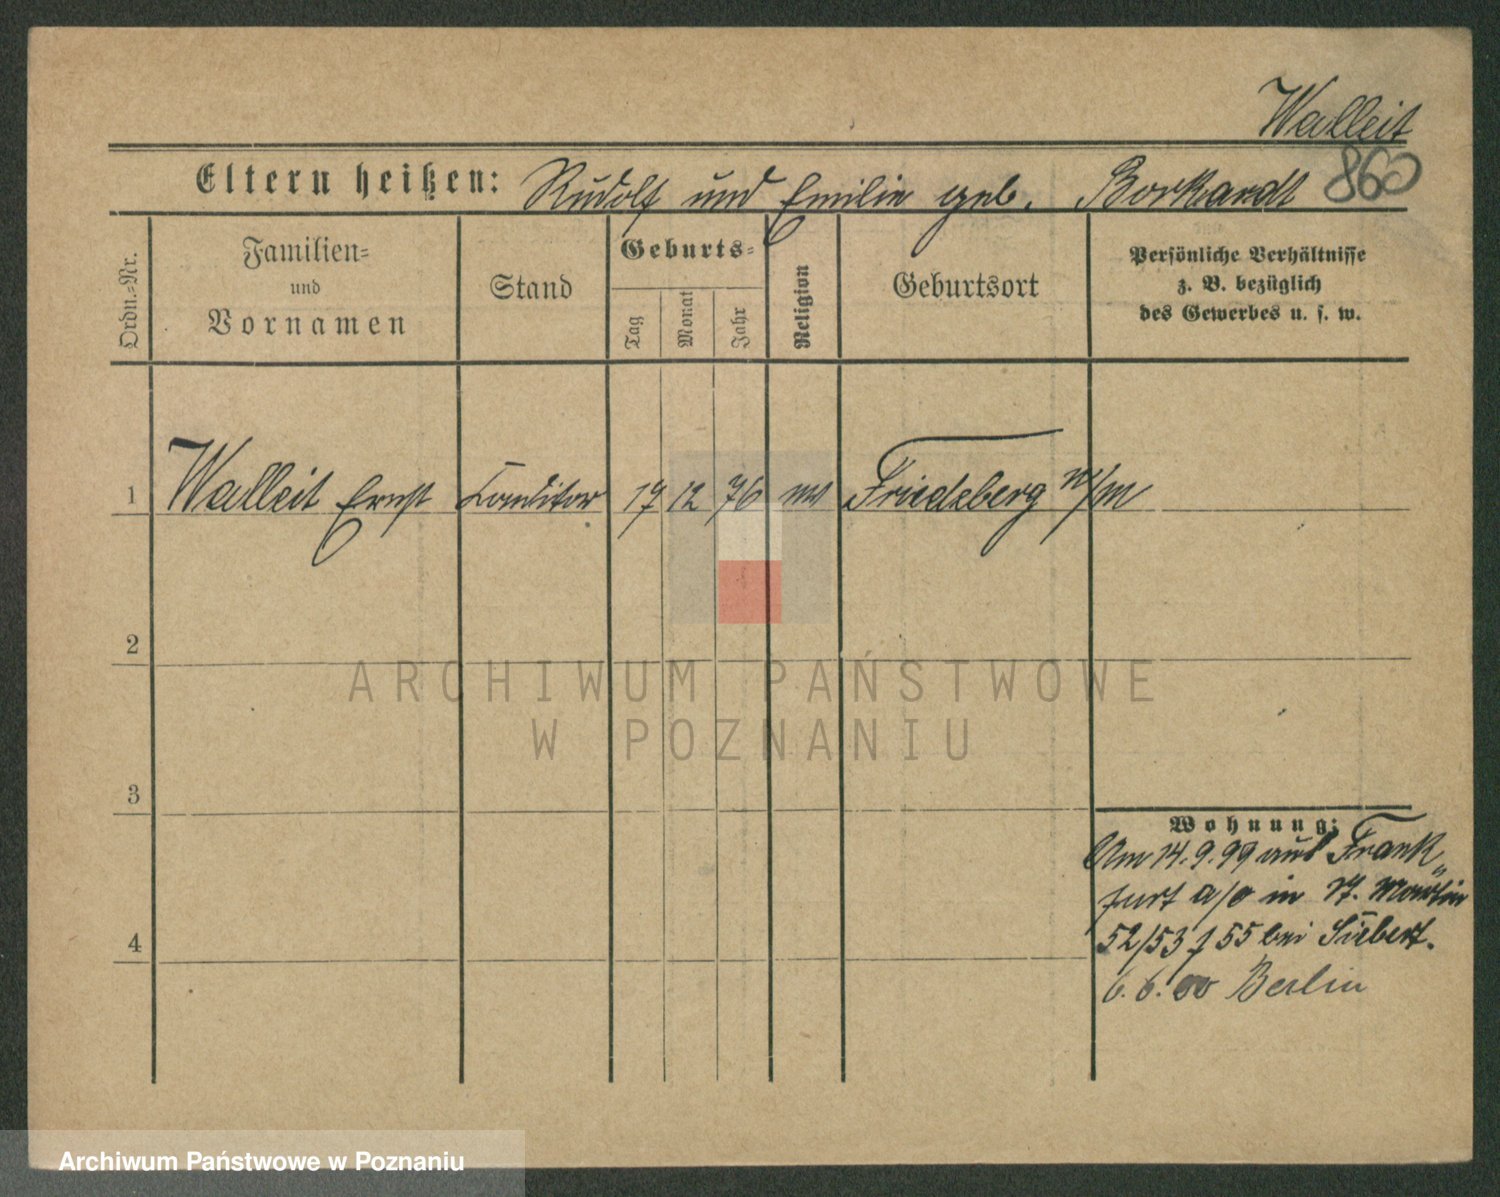 Walleit
860
Eltern heißen: Rudolf und Emilie geb. Borkardt
Ordn.-Nr.
Familien-
und
Vornamen
Stand
Geburts-
Tag
Monat
Jahr
Religion
Geburtsort
Persönliche Verhältnisse
z. B. bezüglich
des Gewerbes u. s. w.
1 Walleit Ernst Conditor 17 12 76 Friedeberg N/M
2
ARCHIWUM PAŃSTWOWE
W POZNANIU
3
Wohnung:
Am 14.9.99 aus Frank„
furt a/o in St. Martin
52/53 f 55 bei Siebert.
4
6.6.00 Berlin
Archiwum Państwowe w Poznaniu